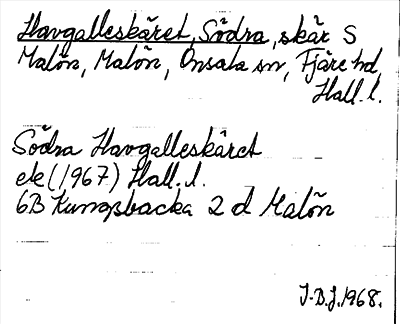 Havgalleskäret, Södra, skär S
Malön, Malön, Onsala sn, Fjäre hd,
Hall. l.
Södra Havgalleskäret
ek (1967) Hall. l.
6B Kungsbacka 2 d Malön
J.B.J. 1968.